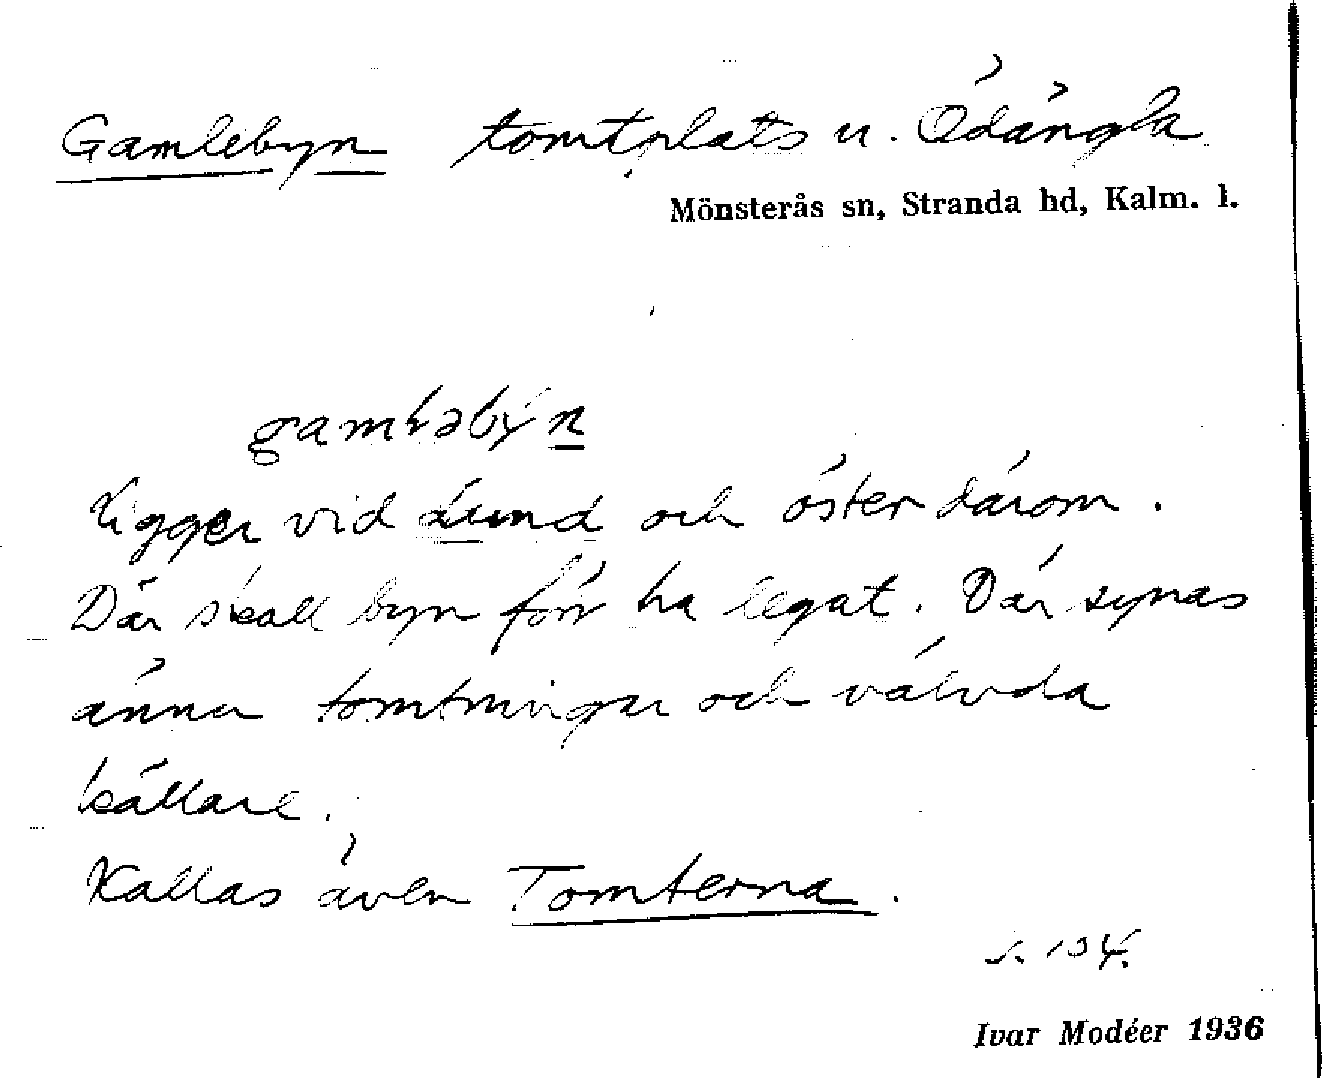 Gamlebyn tomtplats u. Ödängla
Mönsterås sn, Stranda hd, Kalm. l.
Ligger vid Lund och öster därom.
Där skall byn förr ha legat. Där synas
ännu tomtningar och välvda
källare.
Kallas även Tomterna.
s. 134.
Ivar Modéer 1936